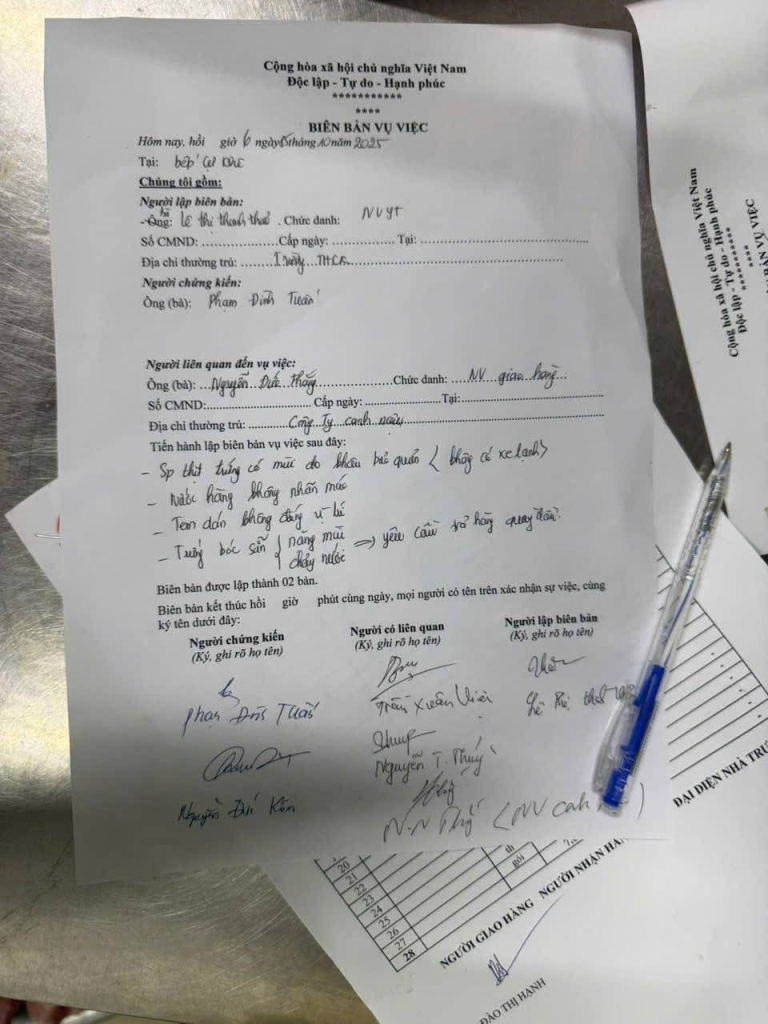 Cộng hòa xã hội chủ nghĩa Việt Nam
Độc lập - Tự do - Hạnh phúc
***********
****
BIÊN BẢN VỤ VIỆC
Hôm nay, hồi giờ 6 ngày 15 tháng 10 năm 2025
Tại: bếp
Chúng tôi gồm:
Người lập biên bản:
Ông: Lê thị thanh thảo. Chức danh: NVYT
Số CMND: Cấp ngày: Tại:
Địa chỉ thường trú: Trường THCS
Người chứng kiến:
Ông (bà): Phạm Đình Tuấn
Người liên quan đến vụ việc:
Ông (bà): Nguyễn Đức Thắng Chức danh: NV giao hàng
Số CMND: Cấp ngày: Tại:
Địa chỉ thường trú: Công Ty
Tiến hành lập biên bản vụ việc sau đây:
- Sp thịt trứng có mùi do khâu bảo quản (không có xe lạnh)
- Nước hàng không nhãn mác
- Tem dán không đúng vị trí
- Trứng bóc sẵn { nặng mùi
chảy nước => yêu cầu trả hàng quay đầu.
Biên bản được lập thành 02 bản.
Biên bản kết thúc hồi giờ phút cùng ngày, mọi người có tên trên xác nhận sự việc, cùng
ký tên dưới đây:
Người chứng kiến Người có liên quan Người lập biên bản
(Ký, ghi rõ họ tên) (Ký, ghi rõ họ tên) (Ký, ghi rõ họ tên)
Phạm Đình Tuấn Trần Xuân Lê Thị
Nguyễn T. Thúy
Nguyễn Đức
N.N (NV
Cộng hòa xã hội chủ nghĩa Việt Nam
Độc lập - Tự do - Hạnh phúc
***********
BẢN VỤ VIỆC
20
21
22
23
24
25
26
27
28
gói
NGƯỜI GIAO HÀNG NGƯỜI NHẬN ĐẠI DIỆN NHÀ
ĐÀO THỊ HẠNH